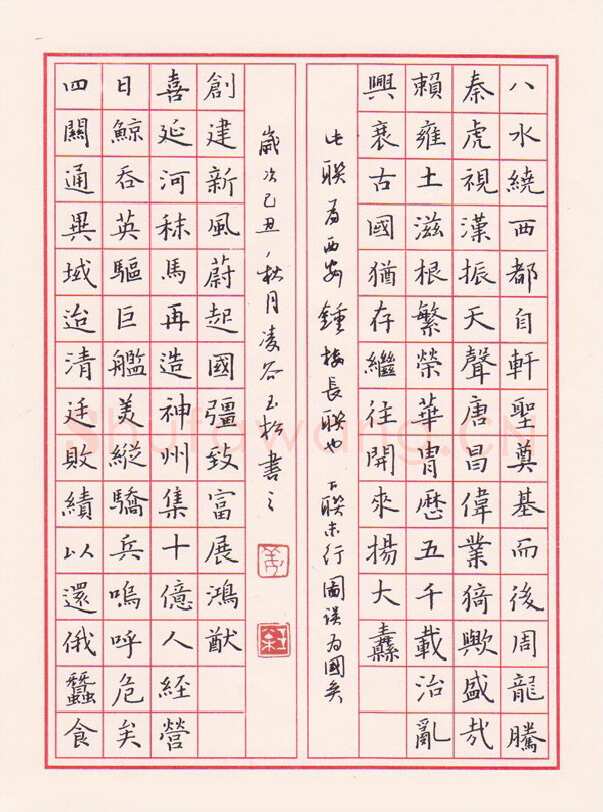 八水繞西都自軒聖奠基而後周龍騰
秦虎視漢振天聲唐昌偉業猗歟盛哉
賴雍土滋根繁榮華胄厯五千載治亂
興衰古國猶存繼往開來揚大纛
此聯為西安鍾樓長聯也 下聯末行圖誤為國矣
四關通異域迨清廷敗績以還俄蠶食
日鯨吞英驅巨艦美縱驕兵嗚呼危矣
喜延河秣馬再造神州集十億人經營
創建新風蔚起國疆致富展鴻猷
歲次己丑、秋月凌谷玉松書之
Shufawang.CN